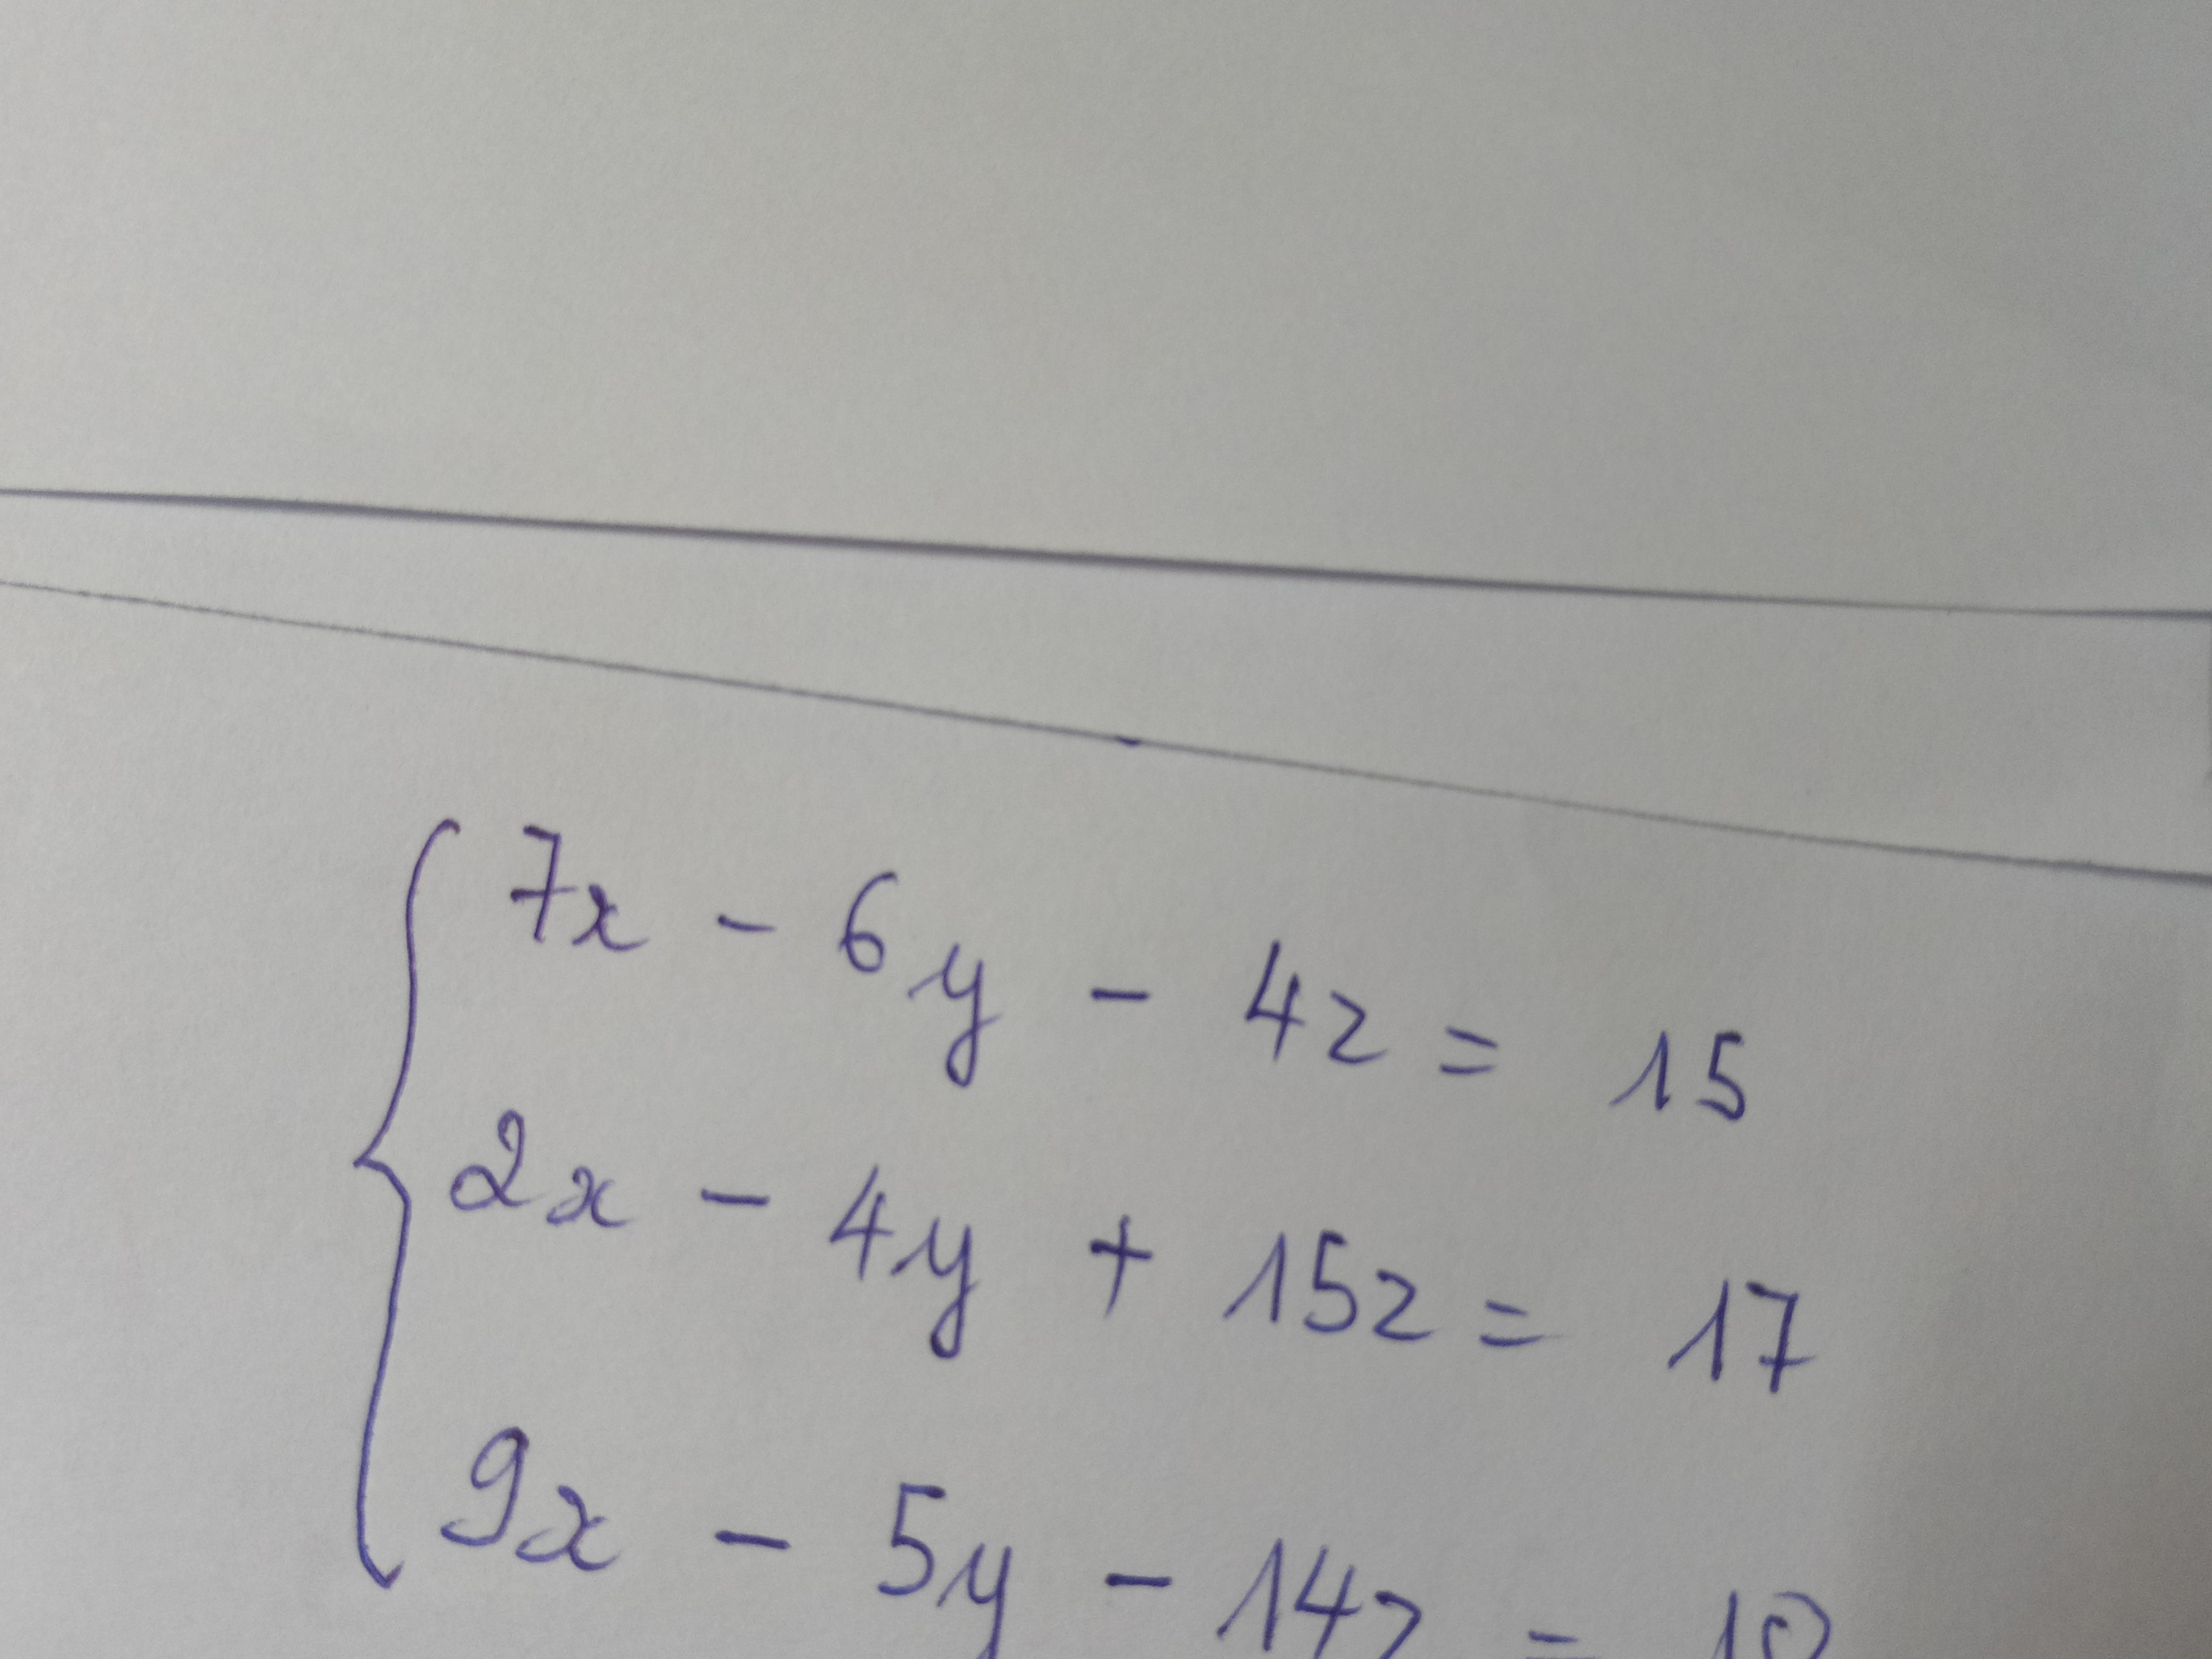 7x - 6y - 4z = 15
2x - 4y + 15z = 17
9x - 5y - 14z =